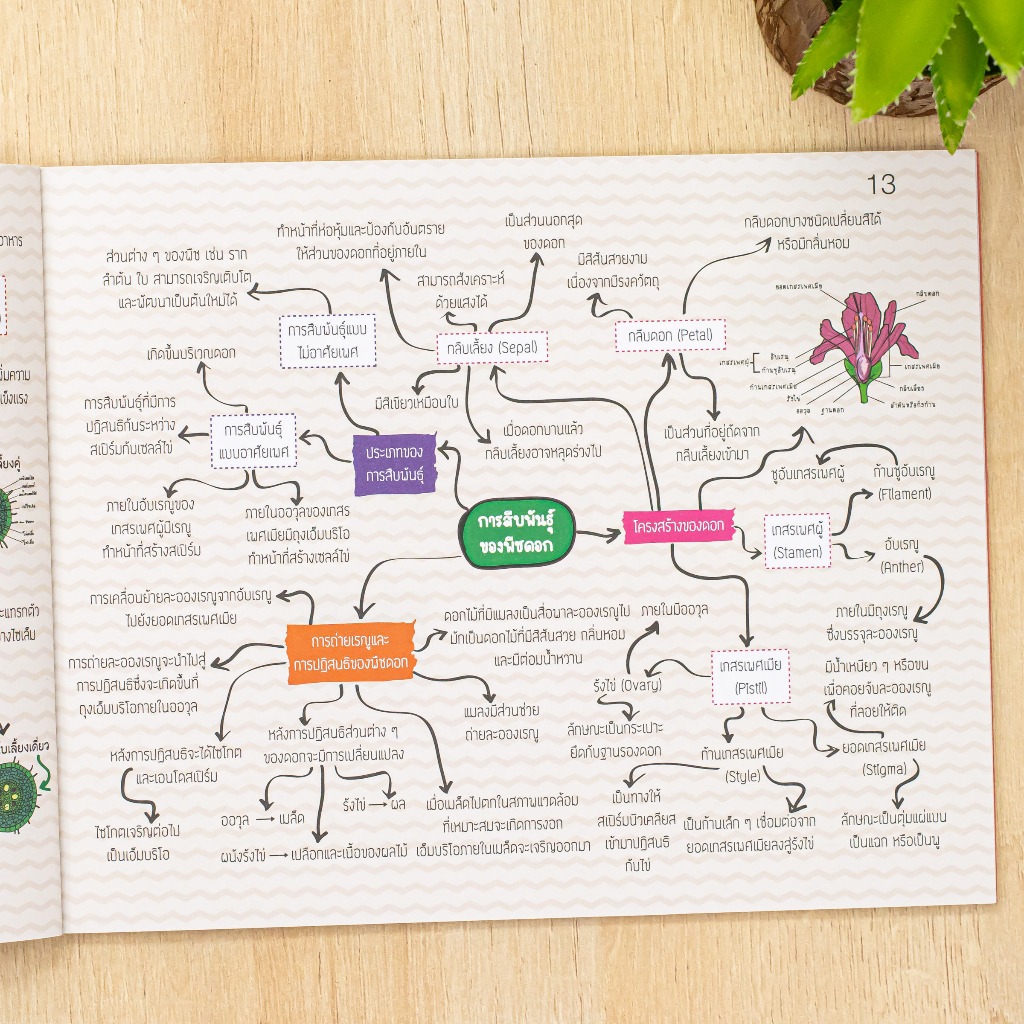 13
อาหาร
พิ่มความ
แข็งแรง
เลี้ยงคู่
และแทรกตัว
บเลี้ยงเดี่ยว
การสืบพันธุ์
ของพืชดอก
ประเภทของ
การสืบพันธุ์
การสืบพันธุ์แบบ
ไม่อาศัยเพศ
ส่วนต่าง ๆ ของพืช เช่น ราก
ลำต้น ใบ สามารถเจริญเติบโต
และพัฒนาเป็นต้นใหม่ได้
การสืบพันธุ์
แบบอาศัยเพศ
เกิดขึ้นบริเวณดอก
การสืบพันธุ์ที่มีการ
ปฏิสนธิกันระหว่าง
สเปิร์มกับเซลล์ไข่
ภายในอับเรณูของ
เกสรเพศผู้มีเรณู
ทำหน้าที่สร้างสเปิร์ม
ภายในออวุลของเกสร
เพศเมียมีถุงเอ็มบริโอ
ทำหน้าที่สร้างเซลล์ไข่
โครงสร้างของดอก
กลีบเลี้ยง (Sepal)
ทำหน้าที่ห่อหุ้มและป้องกันอันตราย
ให้ส่วนของดอกที่อยู่ภายใน
สามารถสังเคราะห์
ด้วยแสงได้
เป็นส่วนนอกสุด
ของดอก
มีสีเขียวเหมือนใบ
เมื่อดอกบานแล้ว
กลีบเลี้ยงอาจหลุดร่วงไป
กลีบดอก (Petal)
มีสีสันสวยงาม
เนื่องจากมีรงควัตถุ
กลีบดอกบางชนิดเปลี่ยนสีได้
หรือมีกลิ่นหอม
เป็นส่วนที่อยู่ถัดจาก
กลีบเลี้ยงเข้ามา
ยอดเกสรเพศเมีย
กลีบดอก
เกสรเพศผู้
อับเรณู
ก้านชูอับเรณู
ก้านเกสรเพศเมีย
รังไข่
ออวุล
ฐานดอก
เกสรเพศเมีย
กลีบเลี้ยง
เกสรเพศผู้
(Stamen)
ชูอับเกสรเพศผู้
ก้านชูอับเรณู
(Filament)
อับเรณู
(Anther)
ภายในมีถุงเรณู
ซึ่งบรรจุละอองเรณู
เกสรเพศเมีย
(Pistil)
ภายในมีออวุล
รังไข่ (Ovary)
ลักษณะเป็นกระเปาะ
ยึดกับฐานรองดอก
ก้านเกสรเพศเมีย
(Style)
เป็นทางให้
สเปิร์มนิวเคลียส
เข้ามาปฏิสนธิ
กับไข่
เป็นก้านเล็ก ๆ เชื่อมต่อจาก
ยอดเกสรเพศเมียลงสู่รังไข่
ยอดเกสรเพศเมีย
(Stigma)
มีน้ำเหนียว ๆ หรือขน
เพื่อคอยจับละอองเรณู
ที่ลอยให้ติด
ลักษณะเป็นตุ่มแผ่แบน
เป็นแฉก หรือเป็นพู
การถ่ายเรณูและ
การปฏิสนธิของพืชดอก
การเคลื่อนย้ายละอองเรณูจากอับเรณู
ไปยังยอดเกสรเพศเมีย
การถ่ายละอองเรณูจะนำไปสู่
การปฏิสนธิซึ่งจะเกิดขึ้นที่
ถุงเอ็มบริโอภายในออวุล
ดอกไม้ที่มีแมลงเป็นสื่อพาละอองเรณูไป
มักเป็นดอกไม้ที่มีสีสันสวย กลิ่นหอม
และมีต่อมน้ำหวาน
แมลงมีส่วนช่วย
ถ่ายละอองเรณู
หลังการปฏิสนธิจะได้ไซโกต
และเอนโดสเปิร์ม
ไซโกตเจริญต่อไป
เป็นเอ็มบริโอ
หลังการปฏิสนธิส่วนต่าง ๆ
ของดอกจะมีการเปลี่ยนแปลง
ออวุล → เมล็ด
รังไข่ → ผล
ผนังรังไข่ → เปลือกและเนื้อของผลไม้
เมื่อเมล็ดไปตกในสภาพแวดล้อม
ที่เหมาะสมจะเกิดการงอก
เอ็มบริโอภายในเมล็ดจะเจริญออกมา